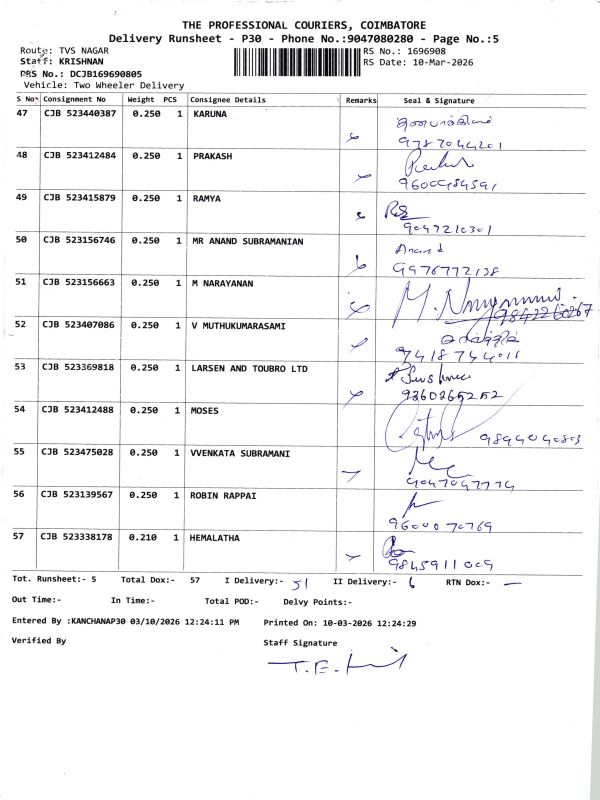 THE PROFESSIONAL COURIERS, COIMBATORE
Delivery Runsheet - P30 - Phone No.:9047080280 - Page No.:5
Route: TVS NAGAR
RS No.: 1696908
Staff: KRISHNAN
RS Date: 10-Mar-2026
DRS No.: DCJB169690805
Vehicle: Two Wheeler Delivery
S No Consignment No Weight PCS Consignee Details Remarks Seal & Signature
47 CJB 523440387 0.250 1 KARUNA
9787044201
48 CJB 523412484 0.250 1 PRAKASH
49 CJB 523415879 0.250 1 RAMYA
9047210301
50 CJB 523156746 0.250 1 MR ANAND SUBRAMANIAN
Anand
9976772138
51 CJB 523156663 0.250 1 M NARAYANAN
9842260267
52 CJB 523407086 0.250 1 V MUTHUKUMARASAMI
7418744011
53 CJB 523369818 0.250 1 LARSEN AND TOUBRO LTD
9360265252
54 CJB 523412488 0.250 1 MOSES
55 CJB 523475028 0.250 1 VVENKATA SUBRAMANI
9047047774
56 CJB 523139567 0.250 1 ROBIN RAPPAI
9600070769
57 CJB 523338178 0.210 1 HEMALATHA
9845911009
Tot. Runsheet:- 5 Total Dox:- 57 I Delivery:- 51 II Delivery:- 6 RTN Dox:- —
Out Time:- In Time:- Total POD:- Delvy Points:-
Entered By :KANCHANAP30 03/10/2026 12:24:11 PM Printed On: 10-03-2026 12:24:29
Verified By Staff Signature